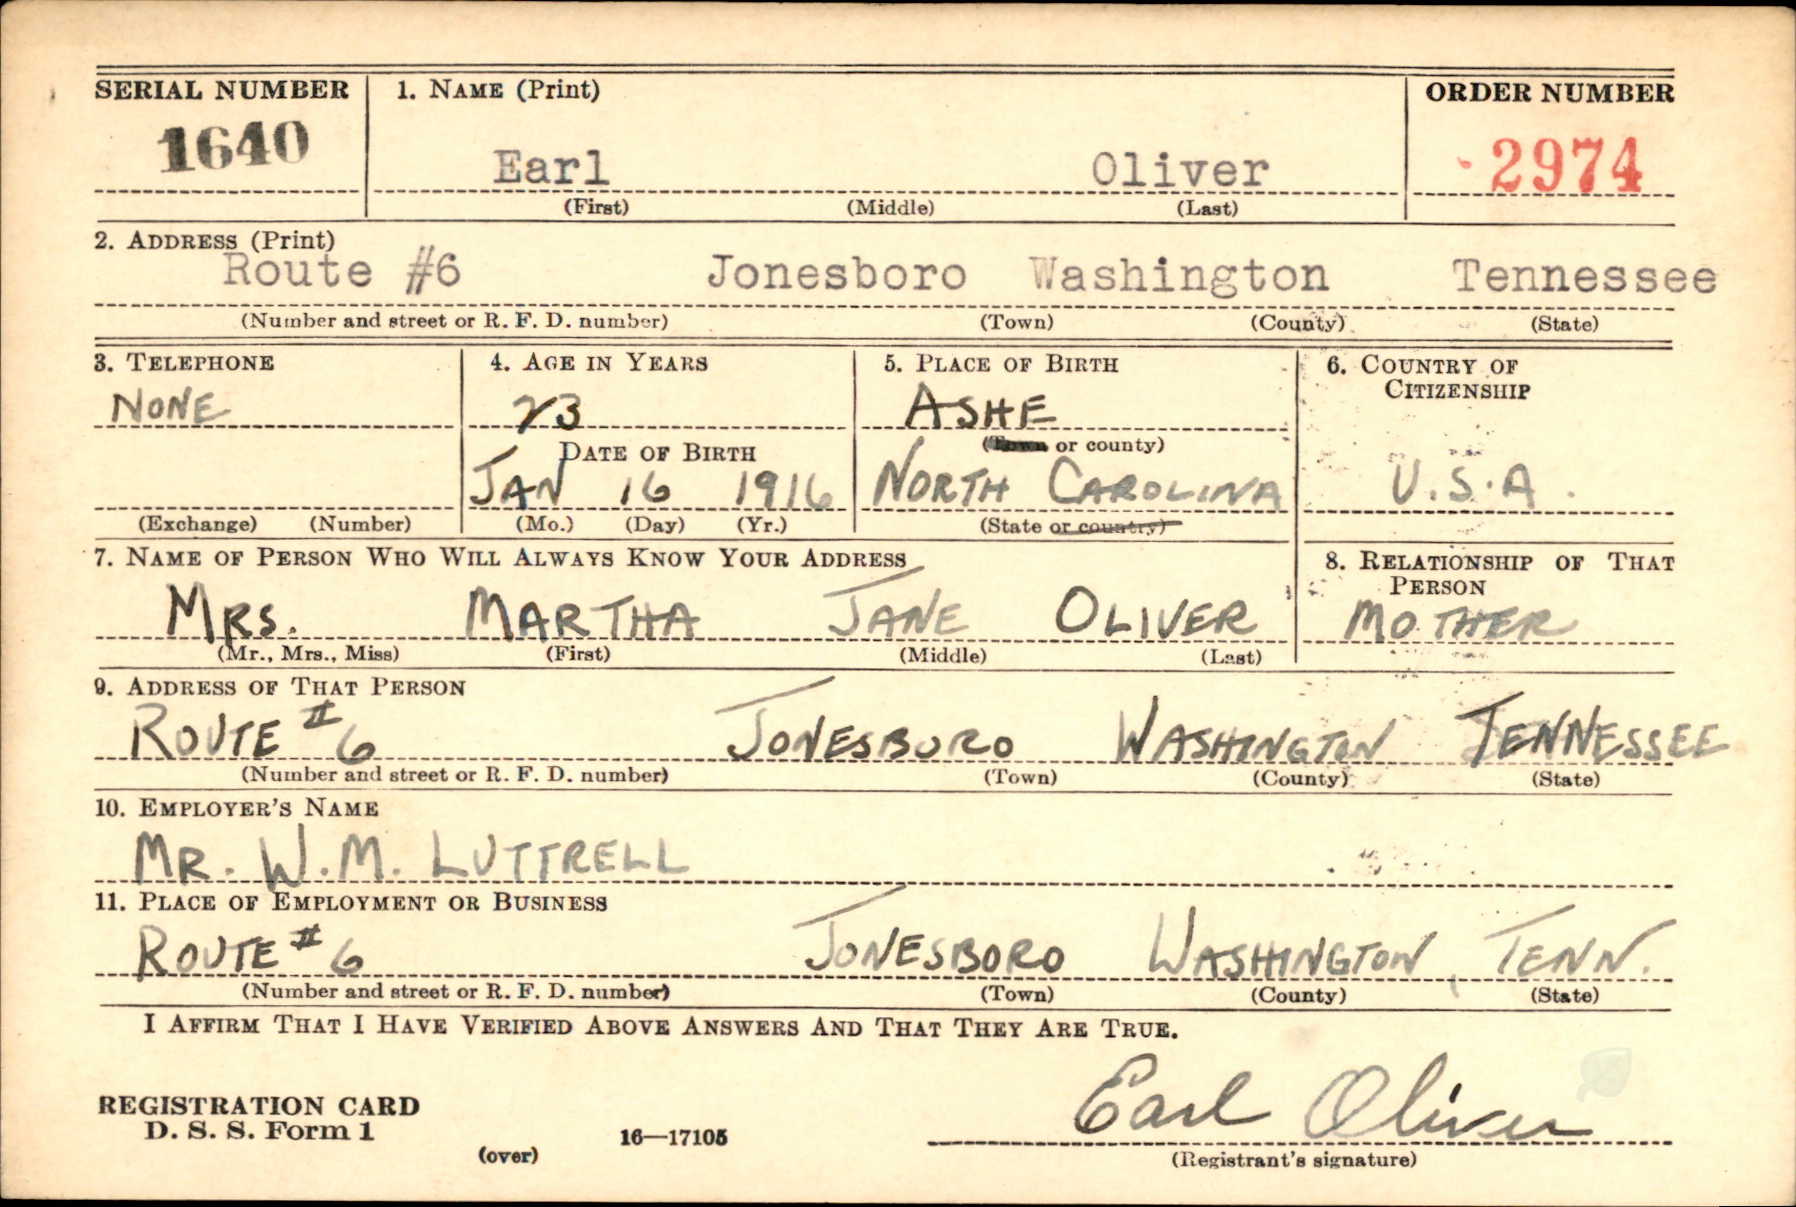 SERIAL NUMBER 1. NAME (Print) ORDER NUMBER
1640 Earl Oliver 2974
(First) (Middle) (Last)
2. ADDRESS (Print)
Route #6 Jonesboro Washington Tennessee
(Number and street or R. F. D. number) (Town) (County) (State)
3. TELEPHONE 4. AGE IN YEARS 5. PLACE OF BIRTH 6. COUNTRY OF
CITIZENSHIP
NONE 23 ASHE
DATE OF BIRTH (Town or county)
JAN 16 1916 NORTH CAROLINA U.S.A.
(Exchange) (Number) (Mo.) (Day) (Yr.) (State or country)
7. NAME OF PERSON WHO WILL ALWAYS KNOW YOUR ADDRESS 8. RELATIONSHIP OF THAT
PERSON
MRS. MARTHA JANE OLIVER MOTHER
(Mr., Mrs., Miss) (First) (Middle) (Last)
9. ADDRESS OF THAT PERSON
ROUTE #6 JONESBORO WASHINGTON TENNESSEE
(Number and street or R. F. D. number) (Town) (County) (State)
10. EMPLOYER'S NAME
MR. W.M. LUTTRELL
11. PLACE OF EMPLOYMENT OR BUSINESS
ROUTE #6 JONESBORO WASHINGTON, TENN.
(Number and street or R. F. D. number) (Town) (County) (State)
I AFFIRM THAT I HAVE VERIFIED ABOVE ANSWERS AND THAT THEY ARE TRUE.
REGISTRATION CARD
D. S. S. Form 1 Earl Oliver
(over) 16—17105 (Registrant's signature)